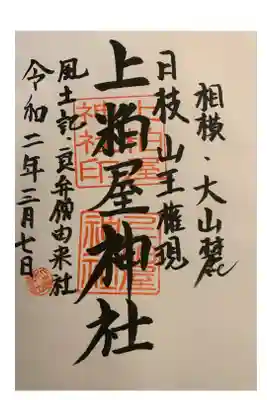 相模・大山麓
日枝山王権現
上粕屋神社
風土記・良弁僧由来社
令和二年三月七日